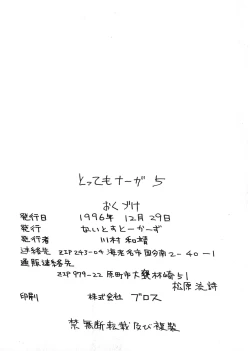 とってもナーガ 5
おくづけ
発行日 1996年 12月 29日
発行 ないとすとーかーず
発行者 川村 和靖
連絡先 ZIP243-04 海老名市国分南2-40-1
通販連絡先
ZIP979-22 原町市大甕林崎51
松原 法詩
印刷 株式会社 プロス
禁 無断転載及び複製